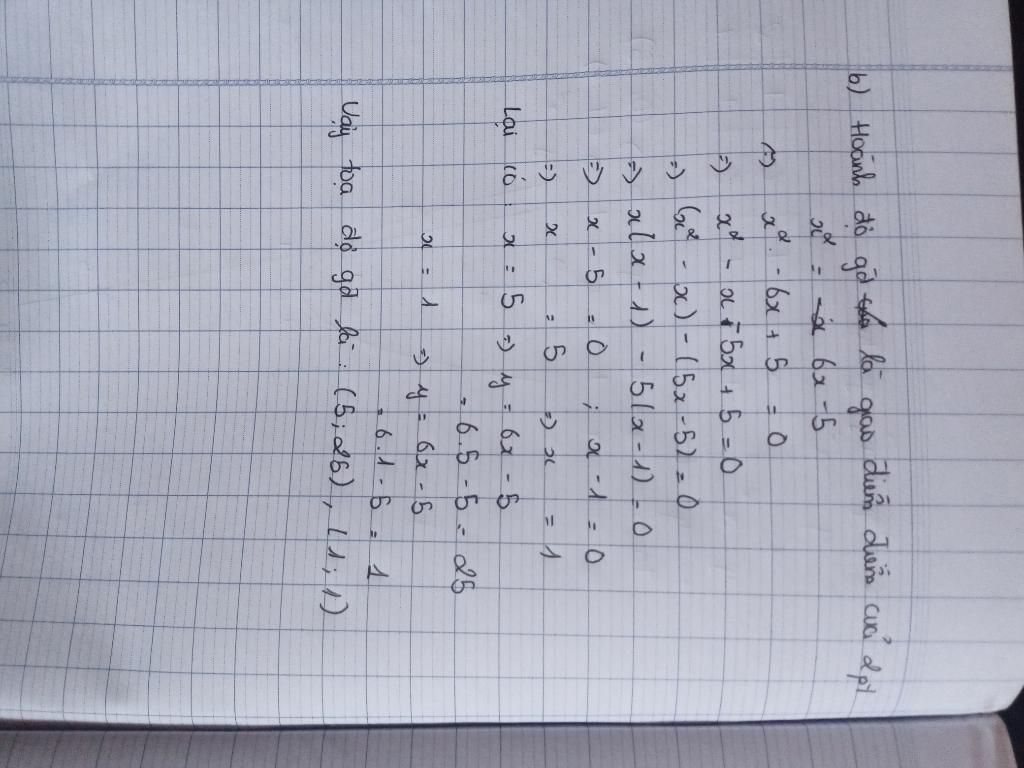 b) Hoành độ gđ là giao điểm điểm của 2pt
x² = 6x - 5
(=) x² - 6x + 5 = 0
=) x² - x - 5x + 5 = 0
=) (x² - x) - (5x - 5) = 0
=) x(x - 1) - 5(x - 1) = 0
=) x - 5 = 0 ; x - 1 = 0
=) x = 5 =) x = 1
Lại có : x = 5 =) y = 6x - 5
= 6.5 - 5 = 25
x = 1 =) y = 6x - 5
= 6.1 - 5 = 1
Vậy tọa độ gđ là : (5 ; 25), (1 ; 1)